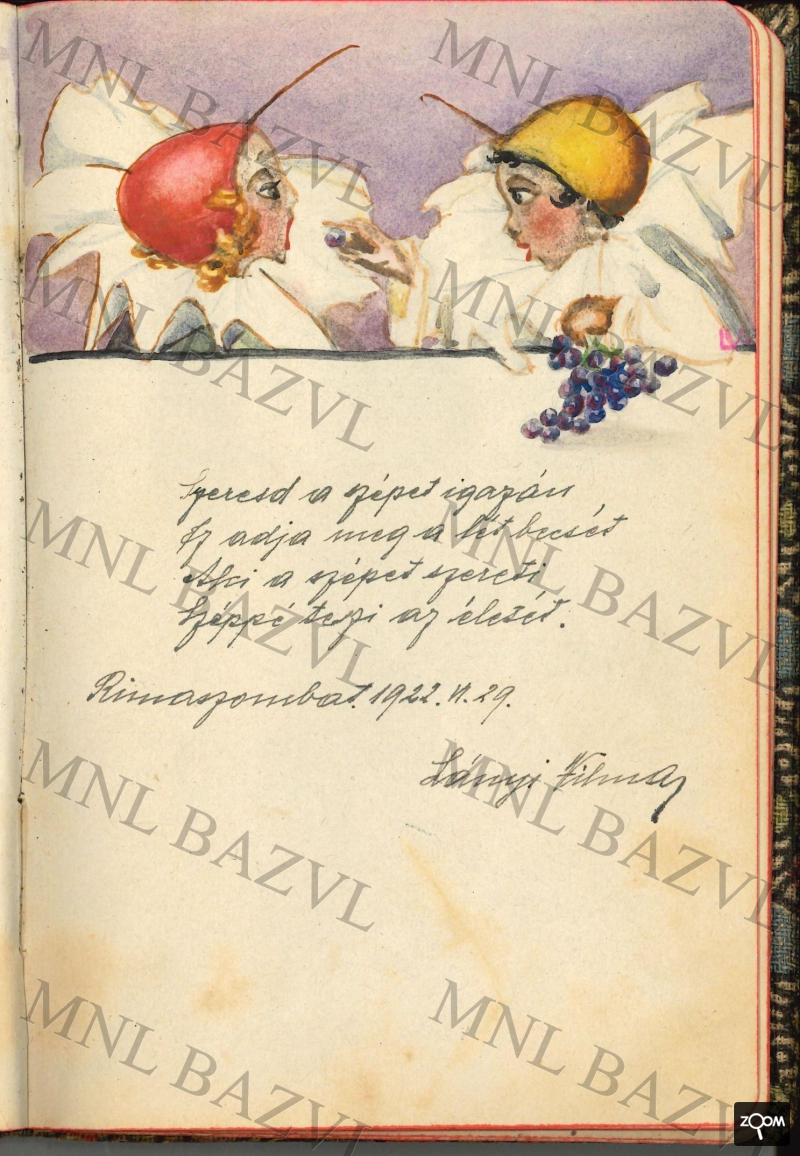 Szeresd a szépet igazán
Ez adja meg a lét becsét
Aki a szépet szereti
Széppé teszi az életét.
Rimaszombat. 1922. VI. 29.
Lányi Vilma
MNL BAZVL
MNL BAZVL
MNL BAZVL
MNL BAZVL
MNL BAZVL
MNL BAZVL
MNL BAZVL
MNL BAZVL
MNL BAZVL
MNL BAZVL
ZOOM